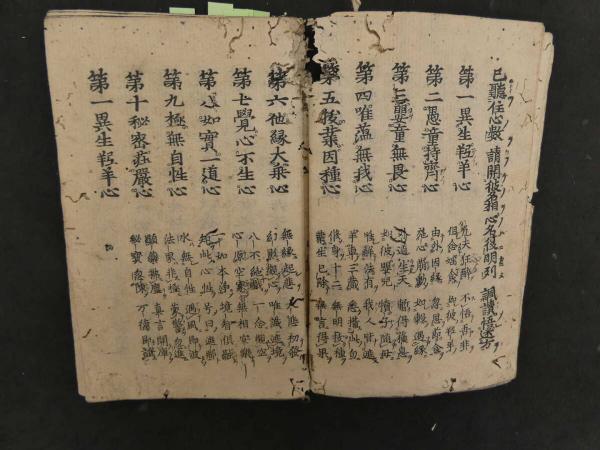 已聽住心數 請開彼名 心名後明列 諷議悟迷方
第一異生羝羊心 凡夫狂醉 不悟吾非 但念婬食 如彼羝羊
第二愚童持齋心 由外因緣 忽思節食 施心萌動 如穀遇緣
第三嬰童無畏心 外道生天 暫得蘇息 如彼嬰兒 犢子隨母
第四唯蘊無我心 唯解法有 我人皆遮 羊車三藏 悉攝此句
第五拔業因種心 修身十二 無明拔種 業生已除 無言得果
第六他緣大乘心 無緣起悲 大悲初發 幻影觀心 唯識遮境
第七覺心不生心 八不絕戲 一念觀空 心原空寂 無相安樂
第八如實一道心 一如本淨 境智俱融 知此心性 號曰遮那
第九極無自性心 水無自性 遇風即波 法界非極 蒙警忽進
第十秘密莊嚴心 顯藥拂塵 真言開庫 秘寶忽陳 万德即證
第一異生羝羊心